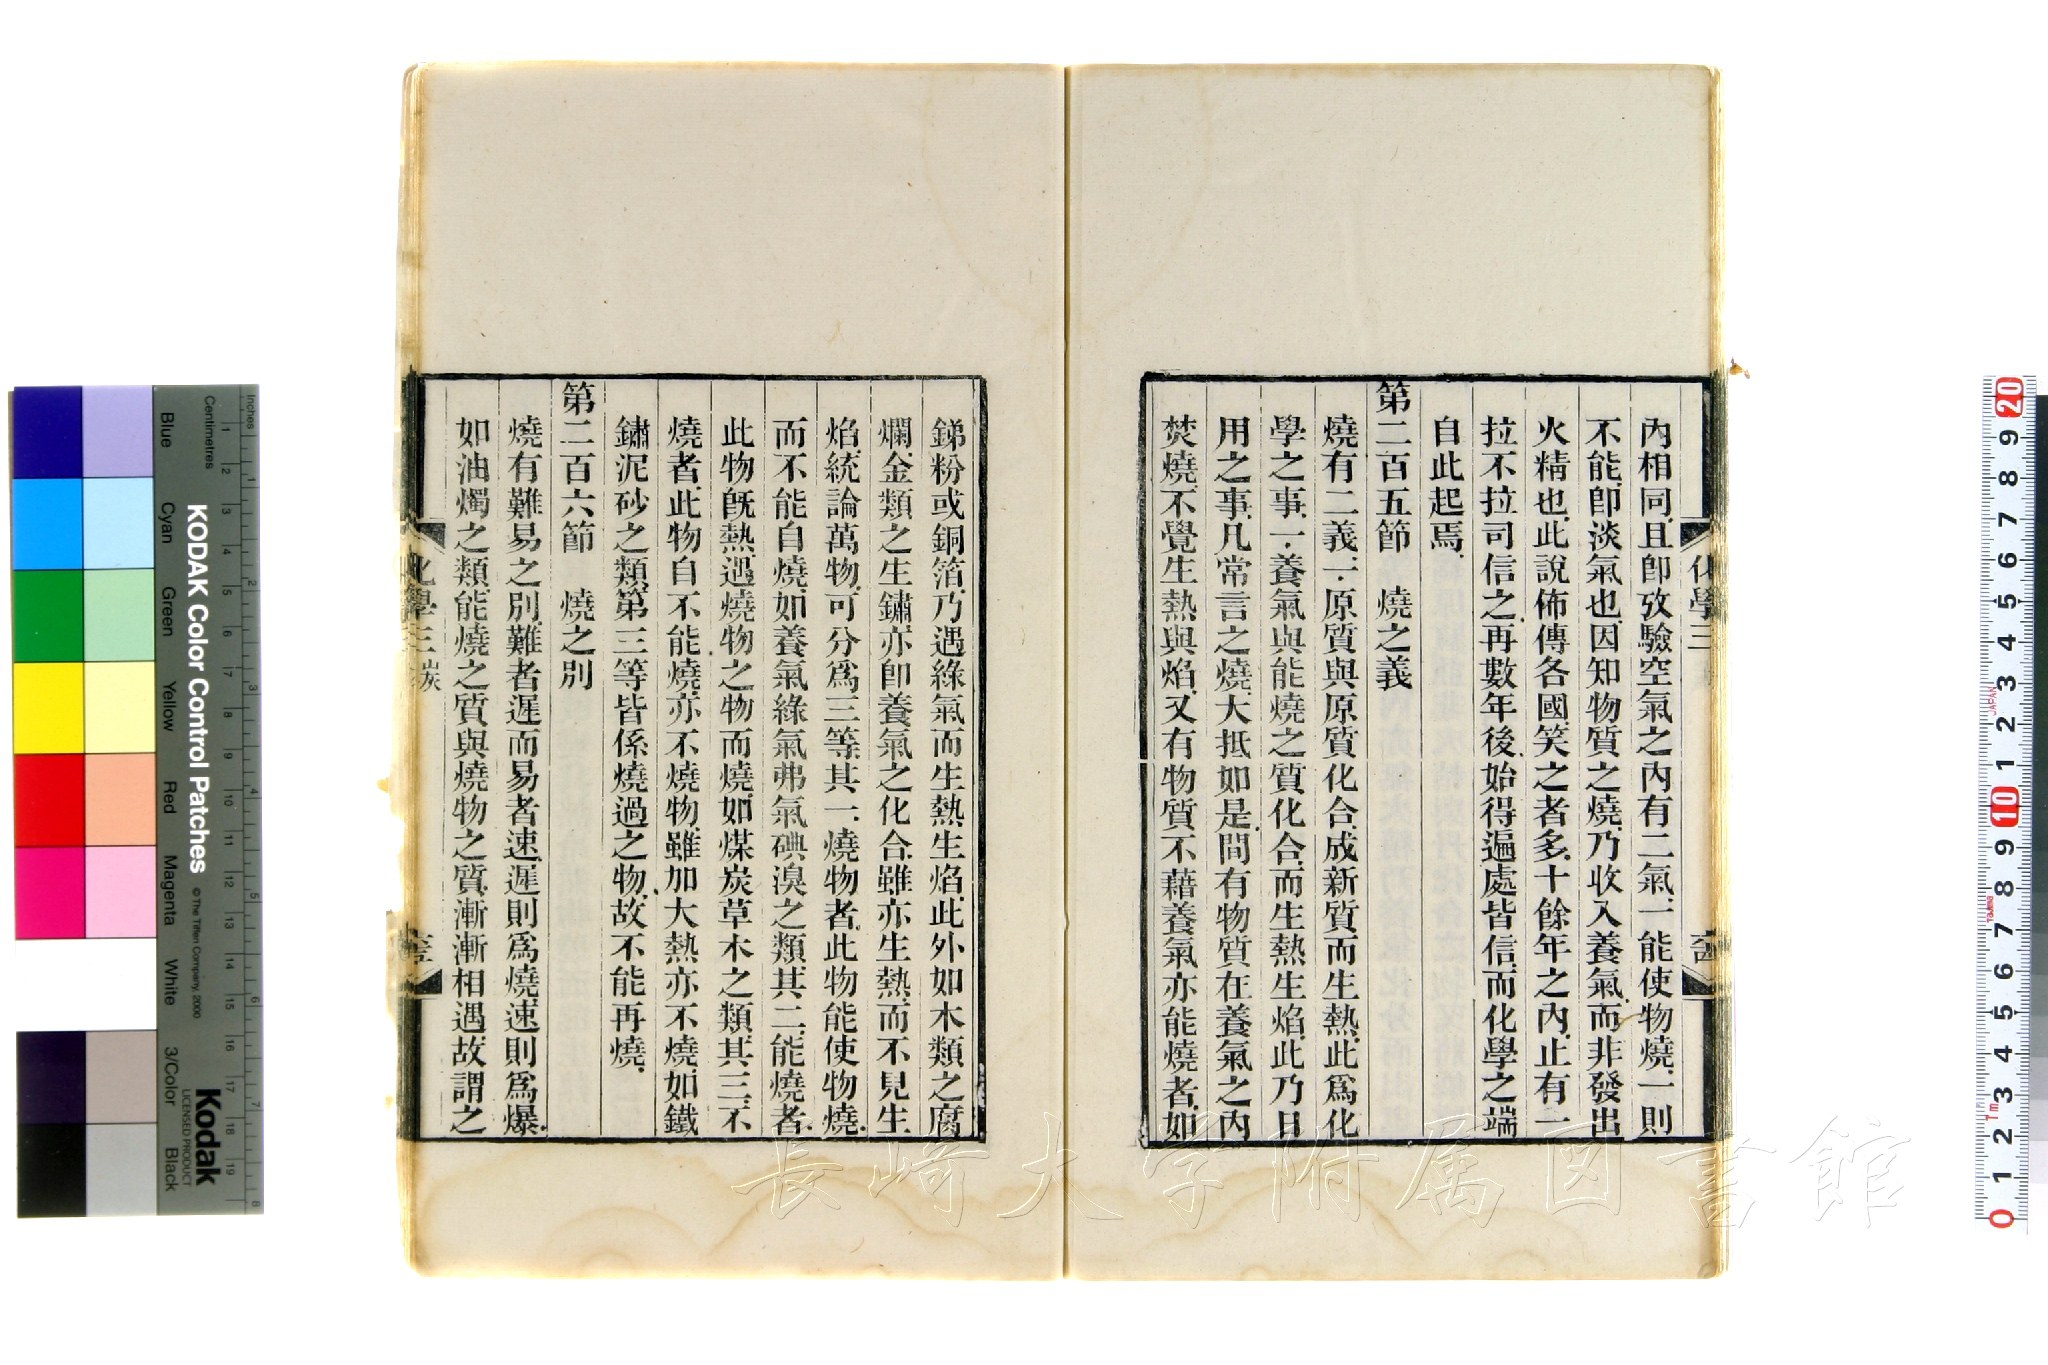 內相同且卽攷驗空氣之內有二氣一能使物燒一則
不能卽淡氣也因知物質之燒乃收入養氣而非發出
火精也此說佈傳各國笑之者多十餘年之內止有一
拉不拉司信之再數年後始得遍處皆信而化學之端
自此起焉
第二百五節 燒之義
燒有二義一原質與原質化合成新質而生熱此爲化
學之事一養氣與能燒之質化合而生熱生焰此乃日
用之事凡常言之燒大抵如是間有物質在養氣之內
焚燒不覺生熱與焰又有物質不藉養氣亦能燒者如
化學三
銻粉或銅箔乃遇綠氣而生熱生焰此外如木類之腐
爛金類之生鏽亦卽養氣之化合雖亦生熱而不見生
焰統論萬物可分爲三等其一燒物者此物能使物燒
而不能自燒如養氣綠氣弗氣碘溴之類其二能燒者
此物旣熱遇燒物之物而燒如煤炭草木之類其三不
燒者此物自不能燒亦不燒物雖加大熱亦不燒如鐵
鏽泥砂之類第三等皆係燒過之物故不能再燒
第二百六節 燒之別
燒有難易之別難者遲而易者速遲則爲燒速則爲爆
如油燭之類能燒之質與燒物之質漸漸相遇故謂之
化學三 炭
KODAK Color Control Patches
© The Tiffen Company, 2000
Kodak
LICENSED PRODUCT
Inches
Centimetres
Blue
Cyan
Green
Yellow
Red
Magenta
White
3/Color
Black
1 2 3 4 5 6 7 8 9 10 11 12 13 14 15 16 17 18 19
1 2 3 4 5 6 7 8
20 9 8 7 6 5 4 3 2 1 10 9 8 7 6 5 4 3 2 1 0
JAPAN
長崎大学附属図書館